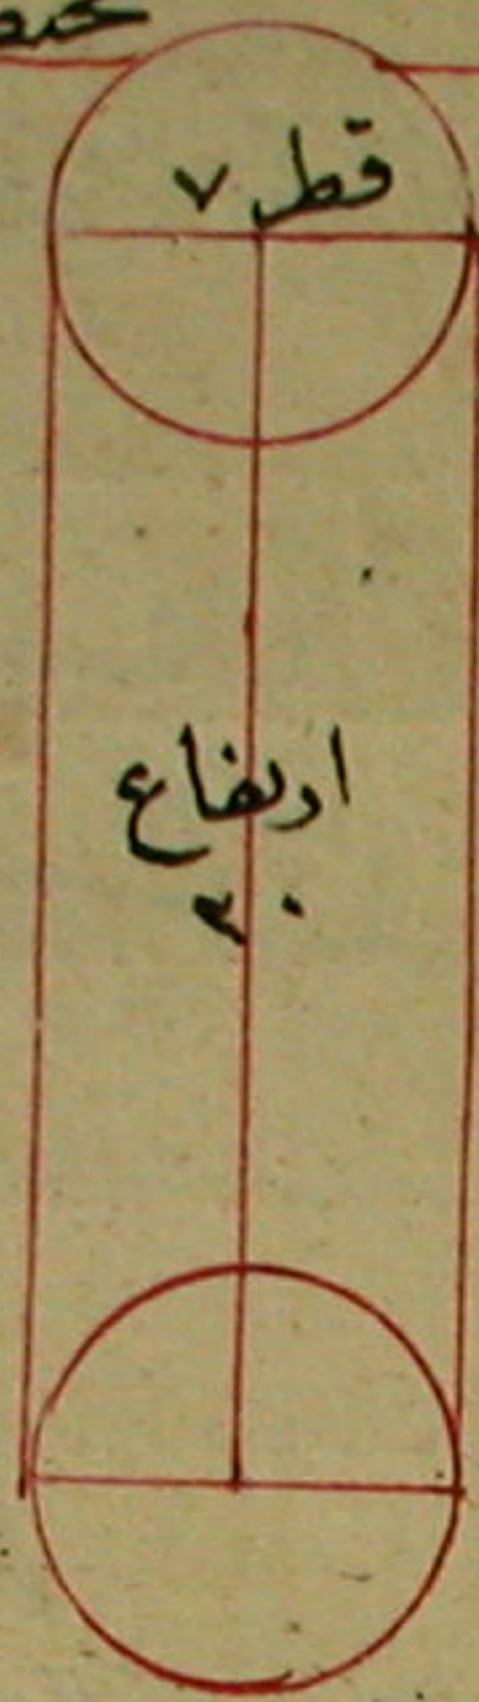 قطر ٧
ارتفاع